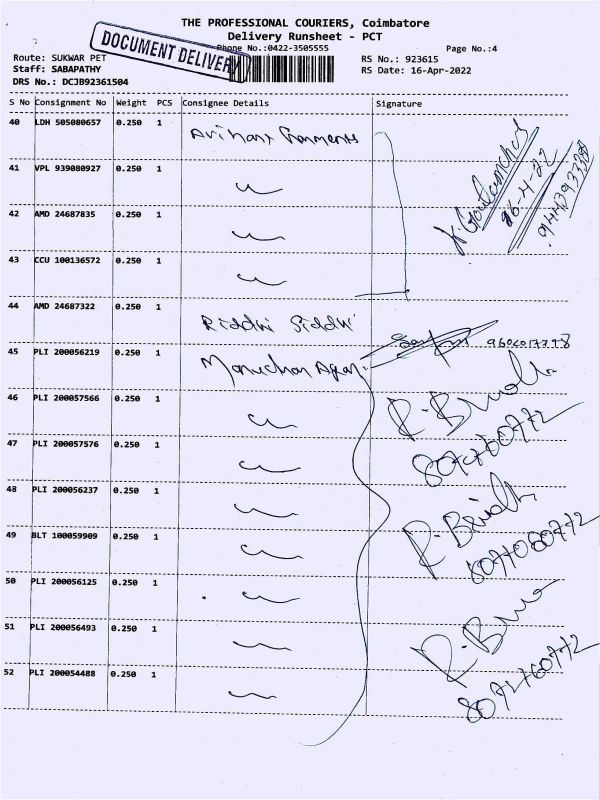 THE PROFESSIONAL COURIERS, Coimbatore
Delivery Runsheet - PCT
DOCUMENT DELIVERY
Phone No.:0422-3505555
Page No.:4
Route: SUKWAR PET
RS No.: 923615
Staff: SABAPATHY
RS Date: 16-Apr-2022
DRS No.: DCJB92361504
S No Consignment No Weight PCS Consignee Details Signature
40 LDH 505080657 0.250 1 Arihant Garments
41 VPL 939080927 0.250 1
42 AMD 24687835 0.250 1
43 CCU 100136572 0.250 1
44 AMD 24687322 0.250 1 Riddhi Siddhi
45 PLI 200056219 0.250 1
46 PLI 200057566 0.250 1
47 PLI 200057576 0.250 1
48 PLI 200056237 0.250 1
49 BLT 100059909 0.250 1
50 PLI 200056125 0.250 1
51 PLI 200056493 0.250 1
52 PLI 200054488 0.250 1